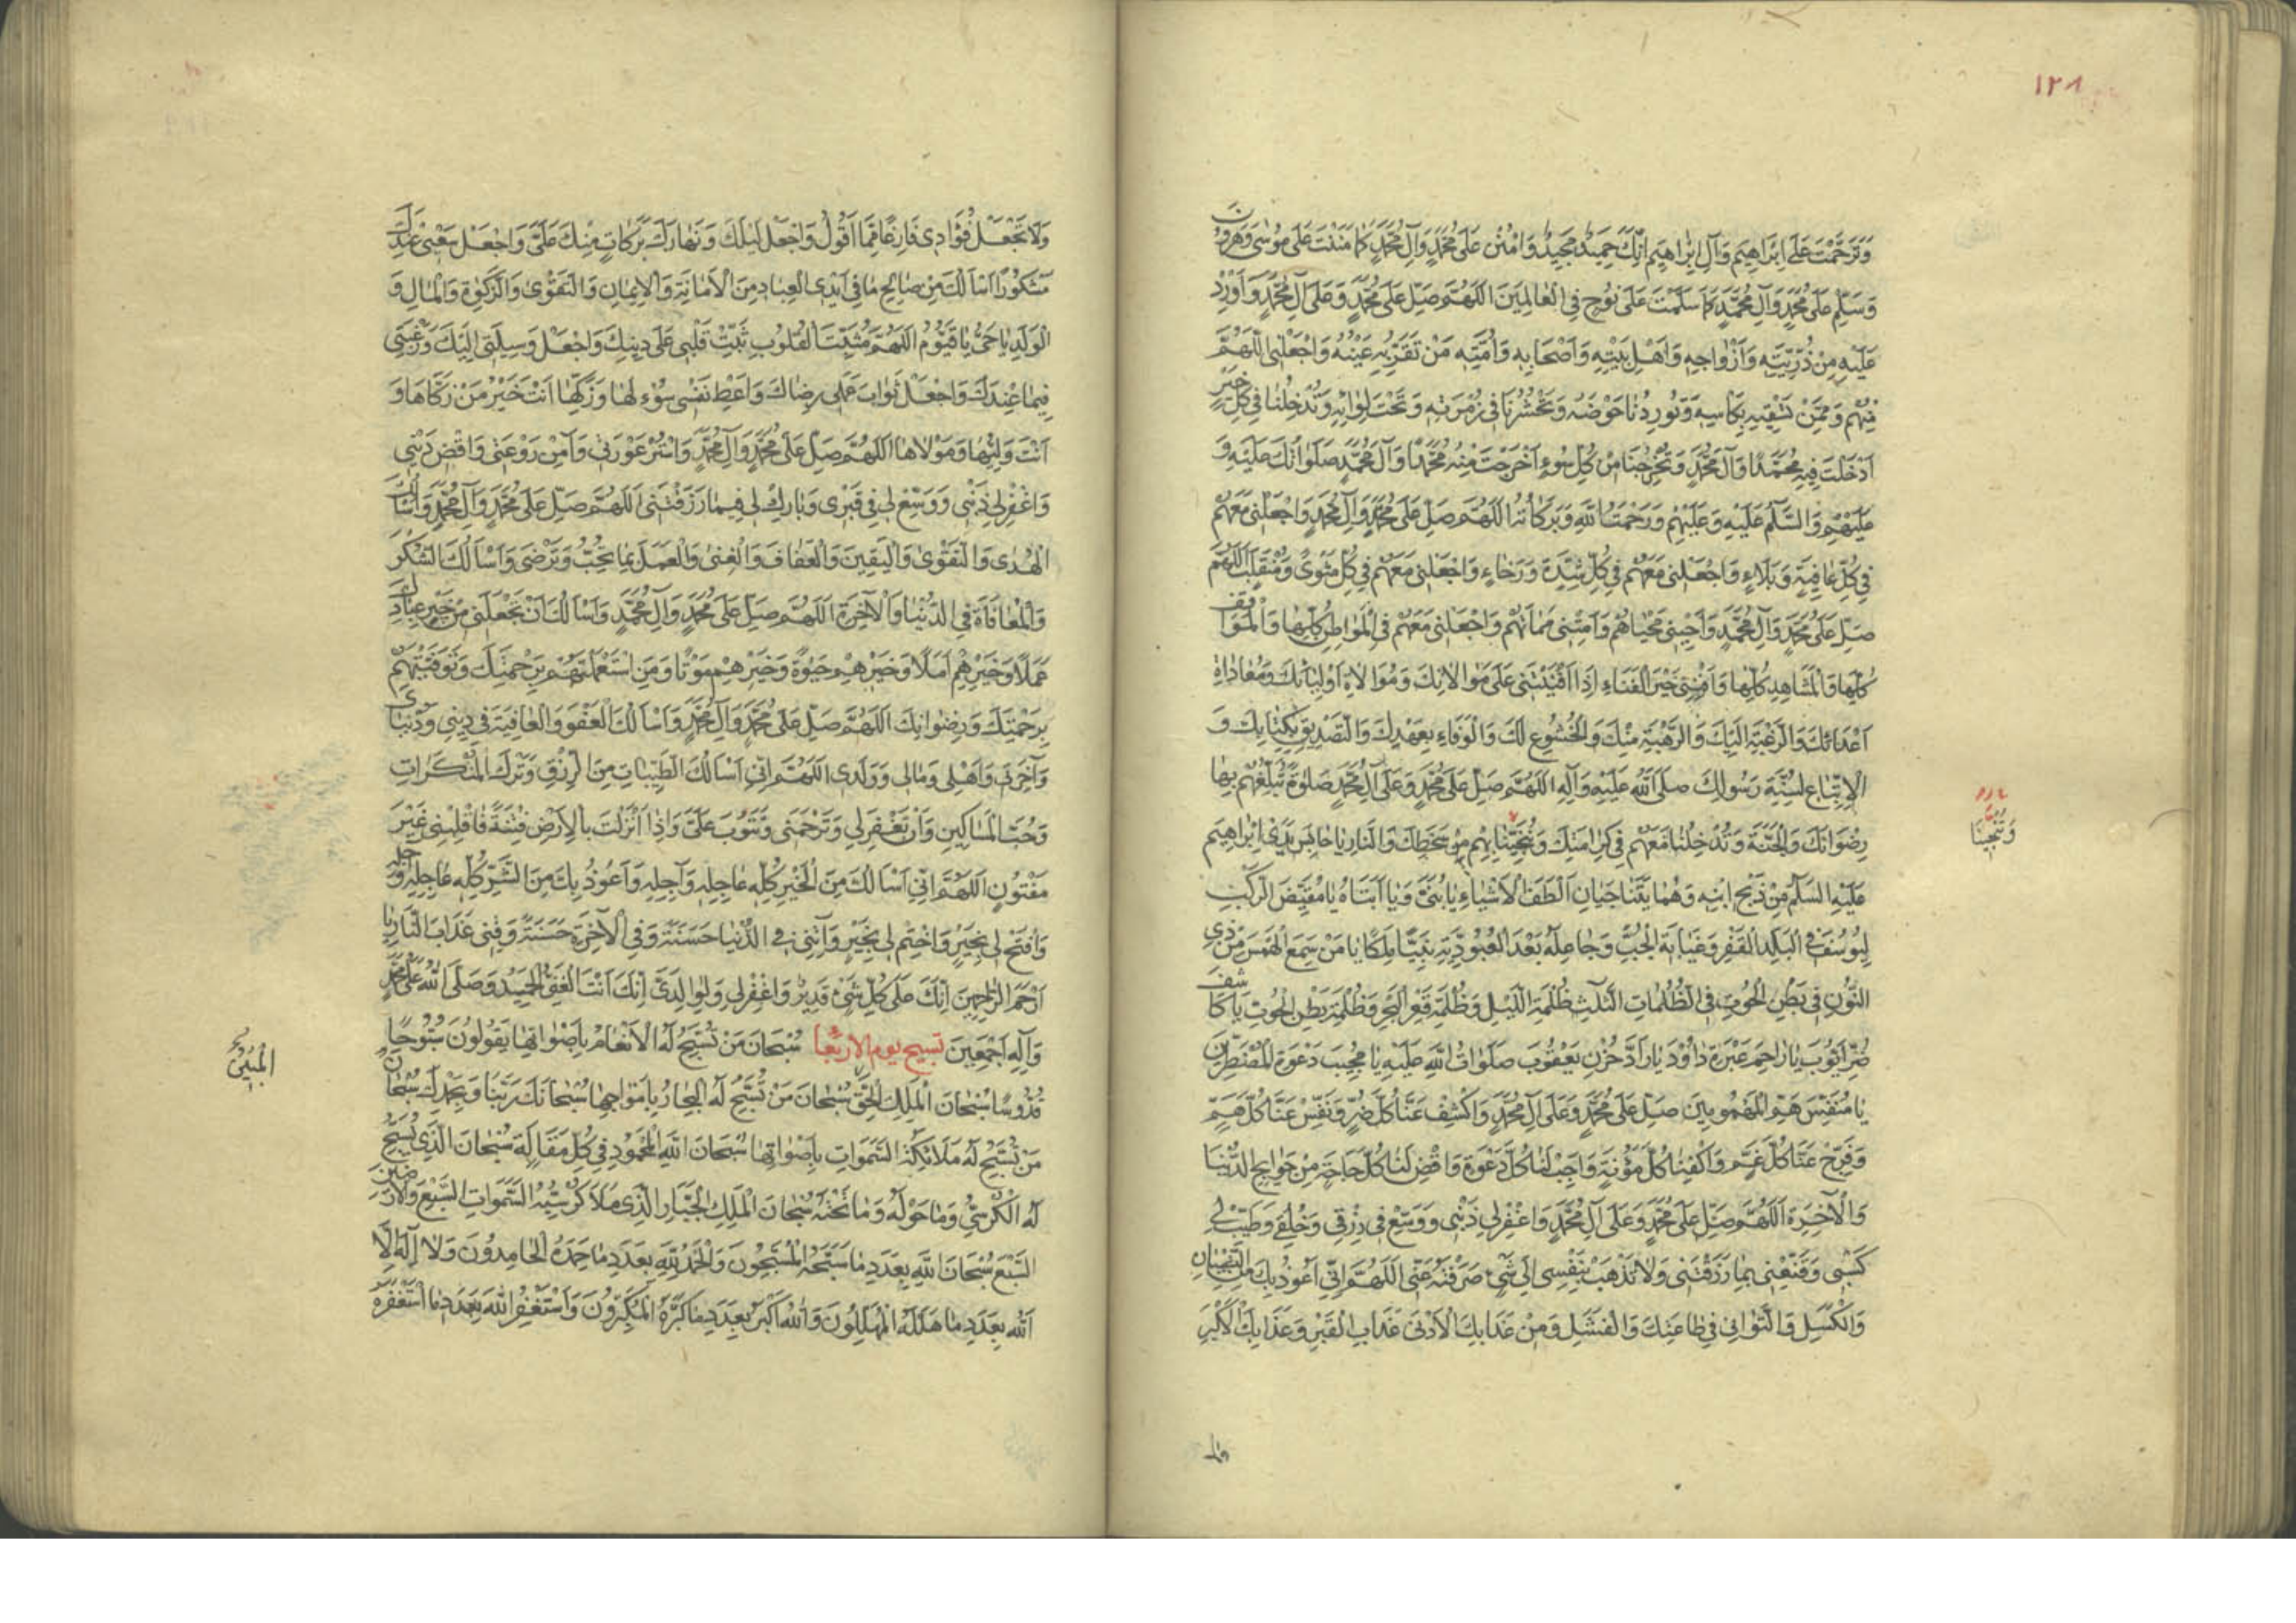 ١٢٨
وَتَرَحَّمْتَ عَلَى اِبْرَاهِيمَ وَآلِ اِبْرَاهِيمَ اِنَّكَ حَمِيدٌ مَجِيدٌ وَامْنُنْ عَلَى مُحَمَّدٍ وَآلِ مُحَمَّدٍ كَمَا مَنَنْتَ عَلَى مُوسَى وَهَرُونَ
وَسَلِّمْ عَلَى مُحَمَّدٍ وَآلِ مُحَمَّدٍ كَمَا سَلَّمْتَ عَلَى نُوحٍ فِي الْعَالَمِينَ اَللّهُمَّ صَلِّ عَلَى مُحَمَّدٍ وَعَلَى آلِ مُحَمَّدٍ وَاَوْرِدْ
عَلَيْهِ مِنْ ذُرِّيَّتِهِ وَاَزْوَاجِهِ وَاَهْلِ بَيْتِهِ وَاَصْحَابِهِ وَاُمَّتِهِ مَنْ تَقَرُّ بِهِ عَيْنُهُ وَاجْعَلْنِي اللّهُمَّ
مِنْهُمْ وَمِمَّنْ تَسْقِيهِ بِكَاْسِهِ وَتُورِدُنَا حَوْضَهُ وَتَحْشُرُنَا فِي زُمْرَتِهِ وَتَحْتَ لِوَائِهِ وَتُدْخِلُنَا فِي كُلِّ خَيْرٍ
اَدْخَلْتَ فِيهِ مُحَمَّدًا وَآلَ مُحَمَّدٍ وَتُخْرِجُنَا مِنْ كُلِّ سُوءٍ اَخْرَجْتَ مِنْهُ مُحَمَّدًا وَآلَ مُحَمَّدٍ صَلَوَاتُكَ عَلَيْهِ وَ
عَلَيْهِمْ وَالسَّلَمُ عَلَيْهِ وَعَلَيْهِمْ وَرَحْمَتُ اللهِ وَبَرَكَاتُهُ اَللّهُمَّ صَلِّ عَلَى مُحَمَّدٍ وَآلِ مُحَمَّدٍ وَاجْعَلْنِي مَعَهُمْ
فِي كُلِّ عَافِيَةٍ وَبَلَاءٍ وَاجْعَلْنِي مَعَهُمْ فِي كُلِّ شِدَّةٍ وَرَخَاءٍ وَاجْعَلْنِي مَعَهُمْ فِي كُلِّ مَثْوًى وَمُنْقَلَبٍ اَللّهُمَّ
صَلِّ عَلَى مُحَمَّدٍ وَآلِ مُحَمَّدٍ وَاَحْيِنِي مَحْيَاهُمْ وَاَمِتْنِي مَمَاتَهُمْ وَاجْعَلْنِي مَعَهُمْ فِي الْمَوَاطِنِ كُلِّهَا وَالْمَوَاقِفِ
كُلِّهَا وَالْمَشَاهِدِ كُلِّهَا وَاَفْنِنِي خَيْرَ الْفَنَاءِ اِذَا اَفْنَيْتَنِي عَلَى مَوَالَاتِكَ وَمُوَالَاةِ اَوْلِيَائِكَ وَمُعَادَاةِ
اَعْدَائِكَ وَالرَّغْبَةِ اِلَيْكَ وَالرَّهْبَةِ مِنْكَ وَالْخُشُوعِ لَكَ وَالْوَفَاءِ بِعَهْدِكَ وَالتَّصْدِيقِ بِكِتَابِكَ وَ
الْاِتِّبَاعِ لِسُنَّةِ رَسُولِكَ صَلَّى اللهُ عَلَيْهِ وَآلِهِ اَللّهُمَّ صَلِّ عَلَى مُحَمَّدٍ وَعَلَى آلِ مُحَمَّدٍ صَلَوةً تُبَلِّغُهُمْ بِهَا
رِضْوَانَكَ وَالْجَنَّةَ وَتُدْخِلُنَا مَعَهُمْ فِي كَرَامَتِكَ وَتُنَجِّيَنَا بِهِمْ مِنْ سَخَطِكَ وَالنَّارِ يَا حَابِسَ يَدَيْ اِبْرَاهِيمَ
وَتُنْجِيَنَا
عَلَيْهِ السَّلَمُ عَنْ ذَبْحِ ابْنِهِ وَهُمَا يَتَنَاجَيَانِ اَلْطَفَ الْاَشْيَاءِ يَا بُنَيَّ وَيَا اَبَتَاهُ يَا مُقَيِّضَ الرَّكْبِ
لِيُوسُفَ فِي الْبَلَدِ الْقَفْرِ وَغَيَابَةِ الْجُبِّ وَجَاعِلَهُ بَعْدَ الْعُبُودِيَّةِ نَبِيًّا مَلِكًا يَا مَنْ سَمِعَ الْهَمْسَ مِنْ ذِي
النُّونِ فِي بَطْنِ الْحُوتِ فِي الظُّلُمَاتِ الثَّلَثِ ظُلْمَةِ اللَّيْلِ وَظُلْمَةِ قَعْرِ الْبَحْرِ وَظُلْمَةِ بَطْنِ الْحُوتِ يَا كَاشِفَ
ضُرِّ اَيُّوبَ يَا رَاحِمَ عَبْرَةِ دَاوُدَ يَا رَادَّ حُزْنِ يَعْقُوبَ صَلَوَاتُ اللهِ عَلَيْهِ يَا مُجِيبَ دَعْوَةِ الْمُضْطَرِّينَ
يَا مُنَفِّسَ هَمِّ الْمَهْمُومِينَ صَلِّ عَلَى مُحَمَّدٍ وَعَلَى آلِ مُحَمَّدٍ وَاكْشِفْ عَنَّا كُلَّ ضُرٍّ وَنَفِّسْ عَنَّا كُلَّ هَمٍّ
وَفَرِّجْ عَنَّا كُلَّ غَمٍّ وَاكْفِنَا كُلَّ مَؤُنَةٍ وَاَجِبْ لَنَا كُلَّ دَعْوَةٍ وَاقْضِ لَنَا كُلَّ حَاجَةٍ مِنْ حَوَايِجِ الدُّنْيَا
وَالْآخِرَةِ اَللّهُمَّ صَلِّ عَلَى مُحَمَّدٍ وَعَلَى آلِ مُحَمَّدٍ وَاغْفِرْ لِي ذَنْبِي وَوَسِّعْ فِي رِزْقِي وَخُلْقِي وَطَيِّبْ لِي
كَسْبِي وَقَنِّعْنِي بِمَا رَزَقْتَنِي وَلَا تَذْهَبْ بِنَفْسِي اِلَى شَيْءٍ صَرَفْتَهُ عَنِّي اَللّهُمَّ اِنِّي اَعُوذُ بِكَ مِنَ النِّسْيَانِ
وَالْكَسَلِ وَالتَّوَانِي فِي طَاعَتِكَ وَالْفَشَلِ وَمِنْ عَذَابِكَ الْاَدْنَى عَذَابِ الْقَبْرِ وَعَذَابِكَ الْاَكْبَرِ
ولا
وَلَا تَجْعَلْ فُؤَادِي فَارِغًا مِمَّا اَقُولُ وَاجْعَلْ لَيْلَكَ وَنَهَارَكَ بَرَكَاتٍ مِنْكَ عَلَيَّ وَاجْعَلْ سَعْيِي عِنْدَكَ
مَشْكُورًا اَسْاَلُكَ مِنْ صَالِحِ مَا فِي اَيْدِي الْعِبَادِ مِنَ الْاَمَانَةِ وَالْاِيمَانِ وَالتَّقْوَى وَالزَّكَوةِ وَالْمَالِ وَ
الْوَلَدِ يَا حَيُّ يَا قَيُّومُ اَللّهُمَّ مُثَبِّتَ الْقُلُوبِ ثَبِّتْ قَلْبِي عَلَى دِينِكَ وَاجْعَلْ وَسِيلَتِي اِلَيْكَ وَرَغْبَتِي
فِيمَا عِنْدَكَ وَاجْعَلْ ثَوَابَ عَمَلِي رِضَاكَ وَاَعْطِ نَفْسِي سُؤْلَهَا وَزَكِّهَا اَنْتَ خَيْرُ مَنْ زَكَّاهَا وَ
اَنْتَ وَلِيُّهَا وَمَوْلَاهَا اَللّهُمَّ صَلِّ عَلَى مُحَمَّدٍ وَآلِ مُحَمَّدٍ وَاسْتُرْ عَوْرَتِي وَآمِنْ رَوْعَتِي وَاقْضِ دَيْنِي
وَاغْفِرْ لِي ذَنْبِي وَوَسِّعْ لِي فِي قَبْرِي وَبَارِكْ لِي فِيمَا رَزَقْتَنِي اَللّهُمَّ صَلِّ عَلَى مُحَمَّدٍ وَآلِ مُحَمَّدٍ وَاَسْاَلُكَ
الْهُدَى وَالتَّقْوَى وَالْيَقِينَ وَالْعَفَافَ وَالْغِنَى وَالْعَمَلَ بِمَا تُحِبُّ وَتَرْضَى وَاَسْاَلُكَ الشُّكْرَ
وَالْمُعَافَاةَ فِي الدُّنْيَا وَالْآخِرَةِ اَللّهُمَّ صَلِّ عَلَى مُحَمَّدٍ وَآلِ مُحَمَّدٍ وَاَسْاَلُكَ اَنْ تَجْعَلَنِي مِنْ خَيْرِ عِبَادِكَ
عَمَلًا وَخَيْرِهِمْ اَمَلًا وَخَيْرِهِمْ حَيَوةً وَخَيْرِهِمْ مَوْتًا وَمَنِ اسْتَعْمَلْتَهُمْ بِرَحْمَتِكَ وَتَوَفَّيْتَهُمْ
بِرَحْمَتِكَ وَرِضْوَانِكَ اَللّهُمَّ صَلِّ عَلَى مُحَمَّدٍ وَآلِ مُحَمَّدٍ وَاَسْاَلُكَ الْعَفْوَ وَالْعَافِيَةَ فِي دِينِي وَدُنْيَايَ
وَآخِرَتِي وَاَهْلِي وَمَالِي وَوَلَدِي اَللّهُمَّ اِنِّي اَسْاَلُكَ الطَّيِّبَاتِ مِنَ الرِّزْقِ وَتَرْكَ الْمُنْكَرَاتِ
وَحُبَّ الْمَسَاكِينِ وَاَنْ تَغْفِرَ لِي وَتَرْحَمَنِي وَتَتُوبَ عَلَيَّ وَاِذَا اَنْزَلْتَ بِالْاَرْضِ فِتْنَةً فَاقْلِبْنِي غَيْرَ
مَفْتُونٍ اَللّهُمَّ اِنِّي اَسْاَلُكَ مِنَ الْخَيْرِ كُلِّهِ عَاجِلِهِ وَآجِلِهِ وَاَعُوذُ بِكَ مِنَ الشَّرِّ كُلِّهِ عَاجِلِهِ وَآجِلِهِ
وَافْتَحْ لِي بِخَيْرٍ وَاخْتِمْ لِي بِخَيْرٍ وَآتِنِي فِي الدُّنْيَا حَسَنَةً وَفِي الْآخِرَةِ حَسَنَةً وَقِنِي عَذَابَ النَّارِ يَا
اَرْحَمَ الرَّاحِمِينَ اِنَّكَ عَلَى كُلِّ شَيْءٍ قَدِيرٌ وَاغْفِرْ لِي وَلِوَالِدَيَّ اِنَّكَ اَنْتَ الْغَنِيُّ الْحَمِيدُ وَصَلَّى اللهُ عَلَى مُحَمَّدٍ
وَآلِهِ اَجْمَعِينَ تسبيح يوم الاربعا سُبْحَانَ مَنْ تُسَبِّحُ لَهُ الْاَنْعَامُ بِاَصْوَاتِهَا يَقُولُونَ سُبُّوحًا
الْمُبِينُ
قُدُّوسًا سُبْحَانَ الْمَلِكِ الْحَقِّ سُبْحَانَ مَنْ تُسَبِّحُ لَهُ الْبِحَارُ بِاَمْوَاجِهَا سُبْحَانَكَ رَبَّنَا وَبِحَمْدِكَ سُبْحَانَ
مَنْ تُسَبِّحُ لَهُ مَلَائِكَةُ السَّمَوَاتِ بِاَصْوَاتِهَا سُبْحَانَ اللهِ الْمَحْمُودِ فِي كُلِّ مَقَالَةٍ سُبْحَانَ الَّذِي يُسَبِّحُ
لَهُ الْكُرْسِيُّ وَمَا حَوْلَهُ وَمَا تَحْتَهُ سُبْحَانَ الْمَلِكِ الْجَبَّارِ الَّذِي مَلَأَ كُرْسِيُّهُ السَّمَوَاتِ السَّبْعَ وَالْاَرَضِينَ
السَّبْعَ سُبْحَانَ اللهِ بِعَدَدِ مَا سَبَّحَهُ الْمُسَبِّحُونَ وَالْحَمْدُ لِلَّهِ بِعَدَدِ مَا حَمِدَهُ الْحَامِدُونَ وَلَا اِلَهَ اِلَّا
اللهُ بِعَدَدِ مَا هَلَّلَهُ الْمُهَلِّلُونَ وَاللهُ اَكْبَرُ بِعَدَدِ مَا كَبَّرَهُ الْمُكَبِّرُونَ وَاَسْتَغْفِرُ اللهَ بِعَدَدِ مَا اسْتَغْفَرَهُ